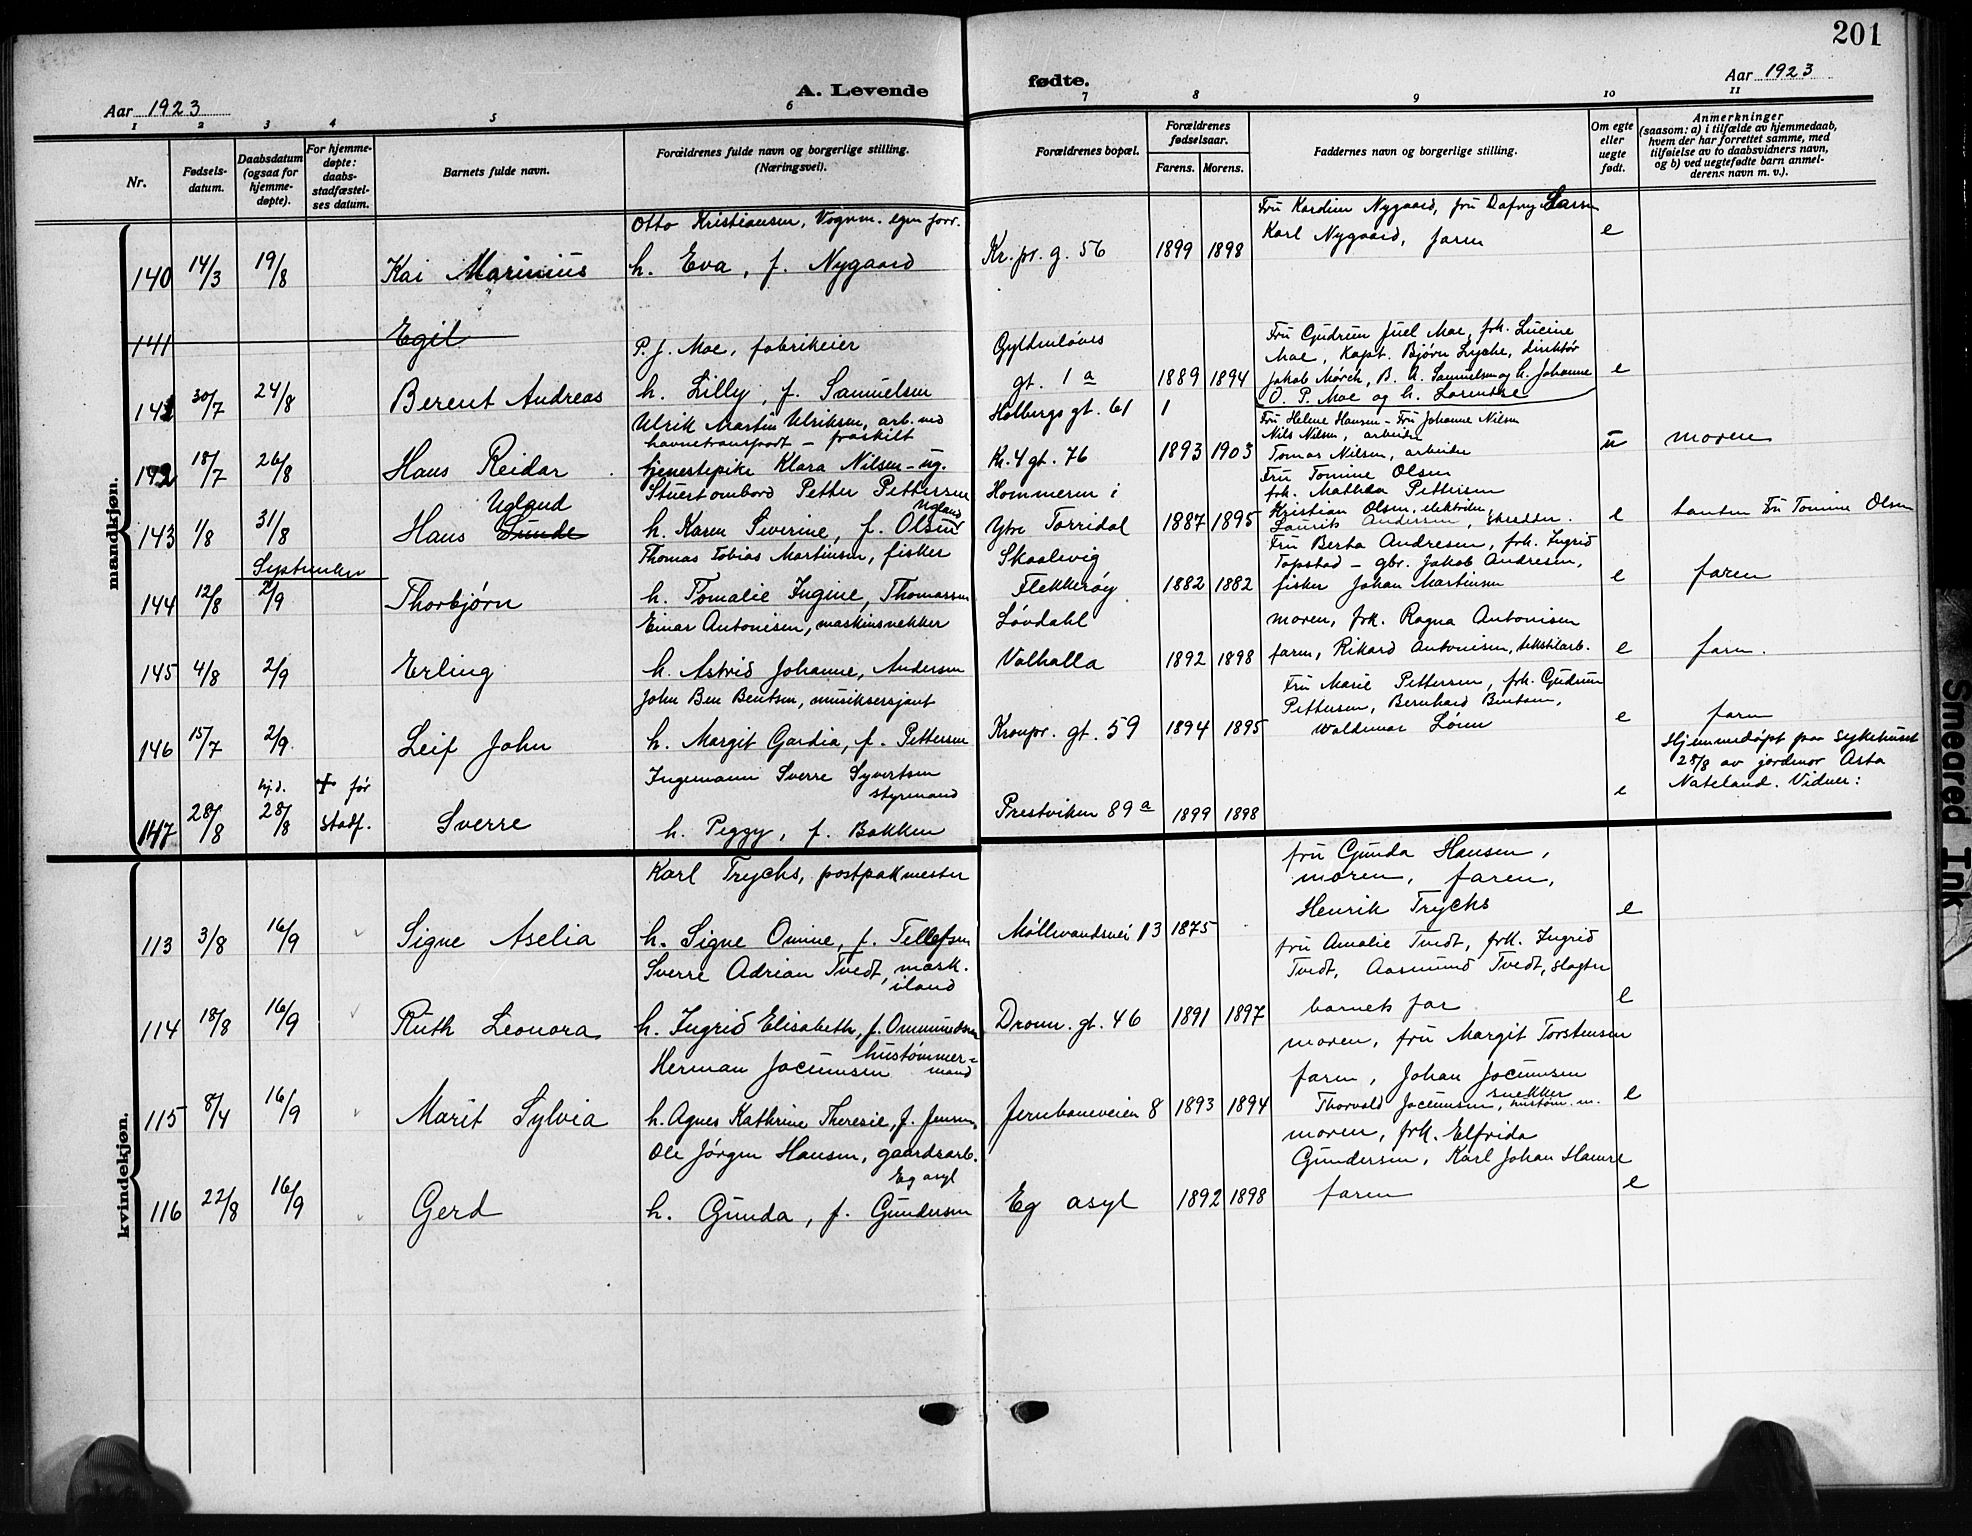 201
Aar 1923
A. Levende fødte.
Aar 1923
1 2 3 4 5 6 7 8 9 10 11
Nr.
Fødsels-
datum.
Daabsdatum
(ogsaa for
hjemme-
døpte).
For hjemme-
døpte:
daabs-
stadfæstel-
ses datum.
Barnets fulde navn.
Forældrenes fulde navn og borgerlige stilling.
(Næringsvei).
Forældrenes bopæl.
Forældrenes
fødselsaar.
Farens. Morens.
Faddernes navn og borgerlige stilling.
Om egte
eller
uegte
født.
Anmerkninger
(saasom: a) i tilfælde av hjemmedaab,
hvem der har forrettet samme, med
tilføielse av to daabsvidners navn,
og b) ved uegtefødte barn anmel-
derens navn m. v.).
mandkjøn.
Otto Kristiansen, Vognm. egen forr.
Fru Kardine Nygaard, fru Dafny Larsen
Karl Nygaard, faren
140 14/3 19/8 Kai Marinius h. Eva, f. Nygaard Kr. pr. g. 56 1899 1898 e
141 Egil
P. J. Moe, fabrikeier
Gyldenløves
Fru Gudrun Juel Moe, frk. Lucine
Moe, Kapt. Bjørn Lyche, direktør
141 30/7 24/8 Berent Andreas h. Lilly, f. Samuelsen gt. 1 a 1889 1894 Jakob Mørch, B. A. Samuelsen og h. Johanne e
O. P. Moe og h. Lorentze
Ulrik Martin Ulriksen, arb. ved
havnetransport – fraskilt
Holbergs gt. 61 1
Fru Helene Hansen – Fru Johanne Nilsen
Nils Nilsen, arbeider
142 18/7 26/8 Hans Reidar tjenestepike Klara Nilsen – ug. Kr. 4 gt. 76 1893 1903 Tomas Nilsen, arbeider u moren
Stuert ombord Petter Pettersen
Hommeren i
Fru Tomine Olsen
frk. Mathilda Pettersen
Kristian Olsen, elektriker
143 1/8 31/8 Hans Lunde Ugland h. Karen Severine, f. Olsen Ugland Ytre Torridal 1887 1895 Laurits Andersen, skrædder. e tanten Fru Tomine Olsen
September
Thomas Tobias Martinsen, fisker
Skaalevig
Fru Berta Andresen, frk. Ingrid
Topstad – gbr. Jakob Andresen,
144 12/8 2/9 Thorbjørn h. Tomalie Ingine, Thomassen Flekkerøy 1882 1882 fisker Johan Martinsen e faren
Einar Antonisen, maskinsnekker
Løvdahl
moren, frk. Ragna Antonisen
145 4/8 2/9 Erling h. Astrid Johanne, Andersen Valhalla 1892 1898 faren, Rikard Antonisen, tekstilarb. e faren.
John Ben Bentsen, musiksersjant
Fru Marie Pettersen, frk. Gudrun
Pettersen, Bernhard Bentsen,
146 15/7 2/9 Leif John h. Margit Gardia, f. Pettersen Kronpr. gt. 59 1894 1895 Waldemar Lønn e faren
Ingemann Sverre Syvertsen
styrmand
Hjemmedøpt paa sykehuset
28/8 av jordmor Asta
Nateland. Vidner:
147 28/8 hj.d. 28/8 + før stadf. Sverre h. Peggy, f. Bakken Prestviken 89 a 1899 1898 e
kvindekjøn.
Karl Trychs, postpakmester
fru Gunda Hansen,
moren, faren,
Henrik Trychs
113 3/8 16/9 Signe Aselia h. Signe Omine, f. Tellefsen Møllevandsvei 13 1875 e
Sverre Adrian Tvedt, mask.
iland
fru Amalie Tvedt, frk. Ingrid
Tvedt, Aasmund Tvedt, slagter
114 18/8 16/9 Ruth Leonora h. Ingrid Elisabeth, f. Ommundsen Dronn. gt. 46 1891 1897 barnets far e
Herman Jocumsen hustømmer-
mand
moren, fru Margit Torstensen
faren, Johan Jocumsen
snekker
115 8/4 16/9 Marit Sylvia h. Agnes Kathrine Theresie, f. Jensen Jernbaneveien 8 1893 1894 Thorvald Jocumsen, hustøm. m. e
Ole Jørgen Hansen, gaardsarb.
Eg asyl
moren, frk. Elfrida
Gundersen, Karl Johan Hamre
116 22/8 16/9 Gerd h. Gunda, f. Gundersen Eg asyl 1892 1898 faren e
Smeared Ink